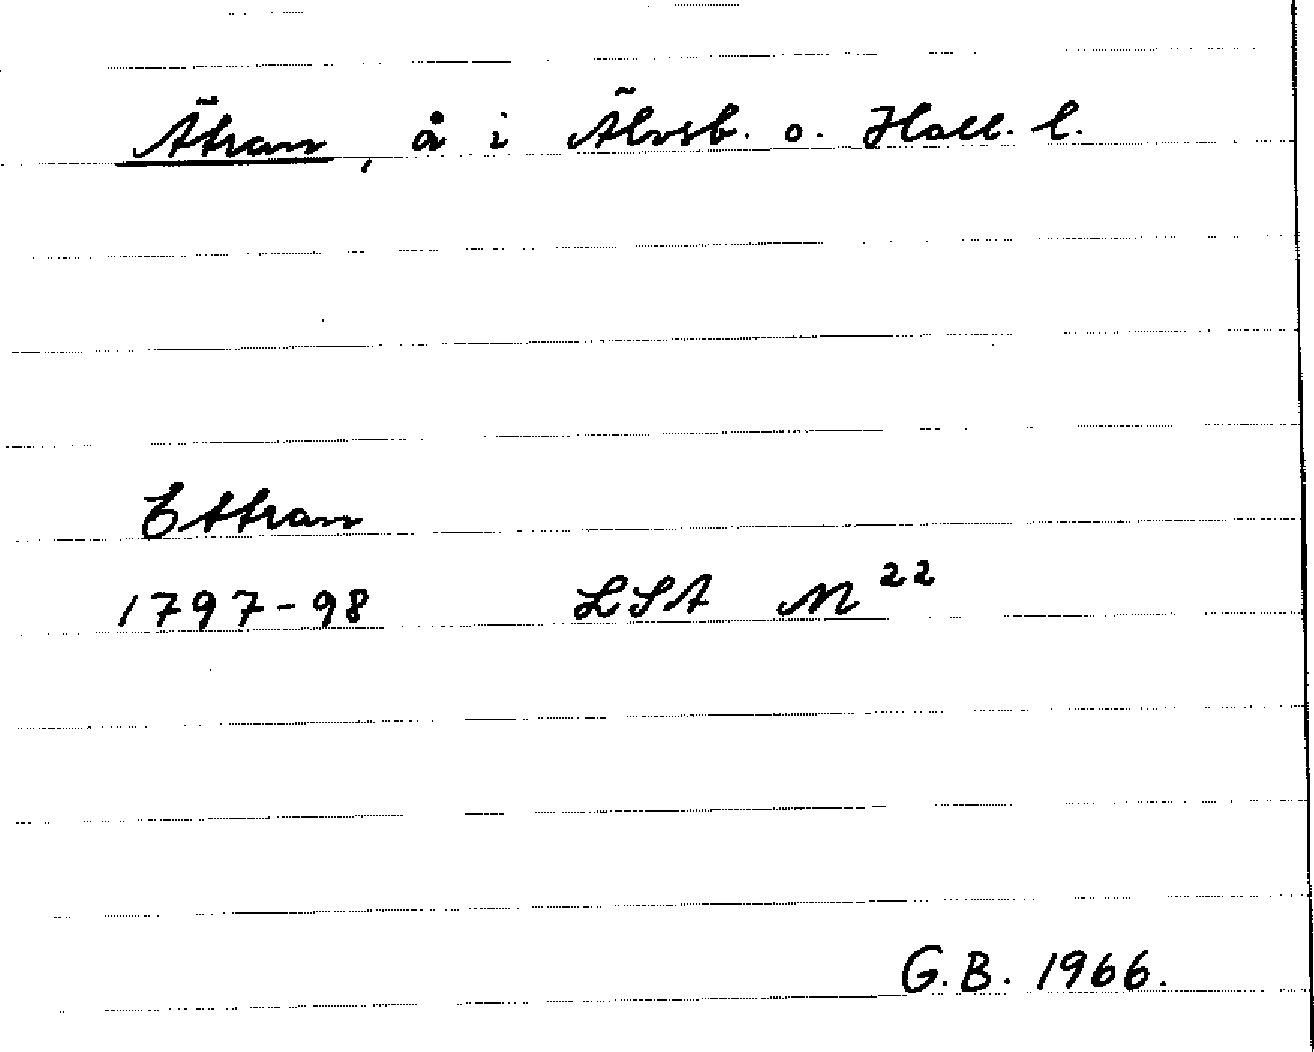 Ätran, å i Älvsb. o. Hall. l.
Ettran
1797-98 LSA M²²
G.B. 1966.